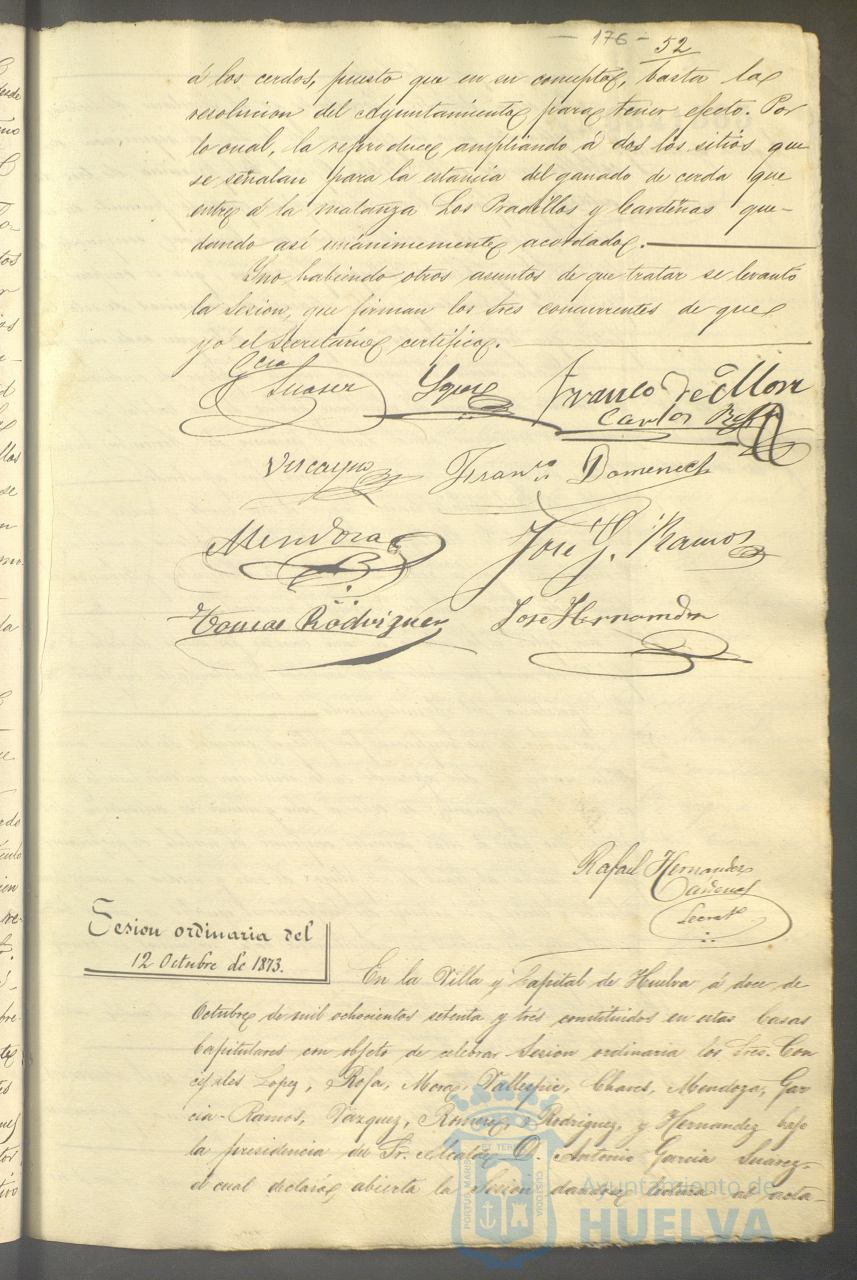 - 176 -
52
á los cerdos, puesto que en su concepto, basta la
resolucion del Ayuntamiento para tener efecto. Por
lo cual, la reproduce ampliando á dos los sitios que
se señalan para la estancia del ganado de cerda que
entre á la matanza Los Pradillos y Cardeñas que-
dando así unánimemente acordado.
Y no habiendo otros asuntos de que tratar se levantó
la Sesion, que firman los Sres concurrentes de que
yó el Secretario certifico.
Gcia Suarez
Franco de Mora
Carlos Rofa
Vizcayno
Franco Domenech
Mendoza
José G. Ramos
Tomas Rodriguez
José Hernandez
Rafael Hernandez
Cardenas
Secreto
Sesion ordinaria del
12 Octubre de 1873.
En la Villa y Capital de Huelva á doce de
Octubre de mil ochocientos setenta y tres constituidos en estas Casas
Capitulares con objeto de celebrar Sesion ordinaria los Sres. Con
cejales Lopez, Rofa, Mora, Vallespin, Chaves, Mendoza, Gar
cia-Ramos, Vazquez, Romero, Rodriguez, y Hernandez bajo
la presidencia del Sr. Alcalde D. Antonio Garcia Suarez,
el cual declaró abierta la Sesion dandose lectura al acta
PORTUS MARIS ET TERRAE CUSTODIA
Ayuntamiento de
HUELVA